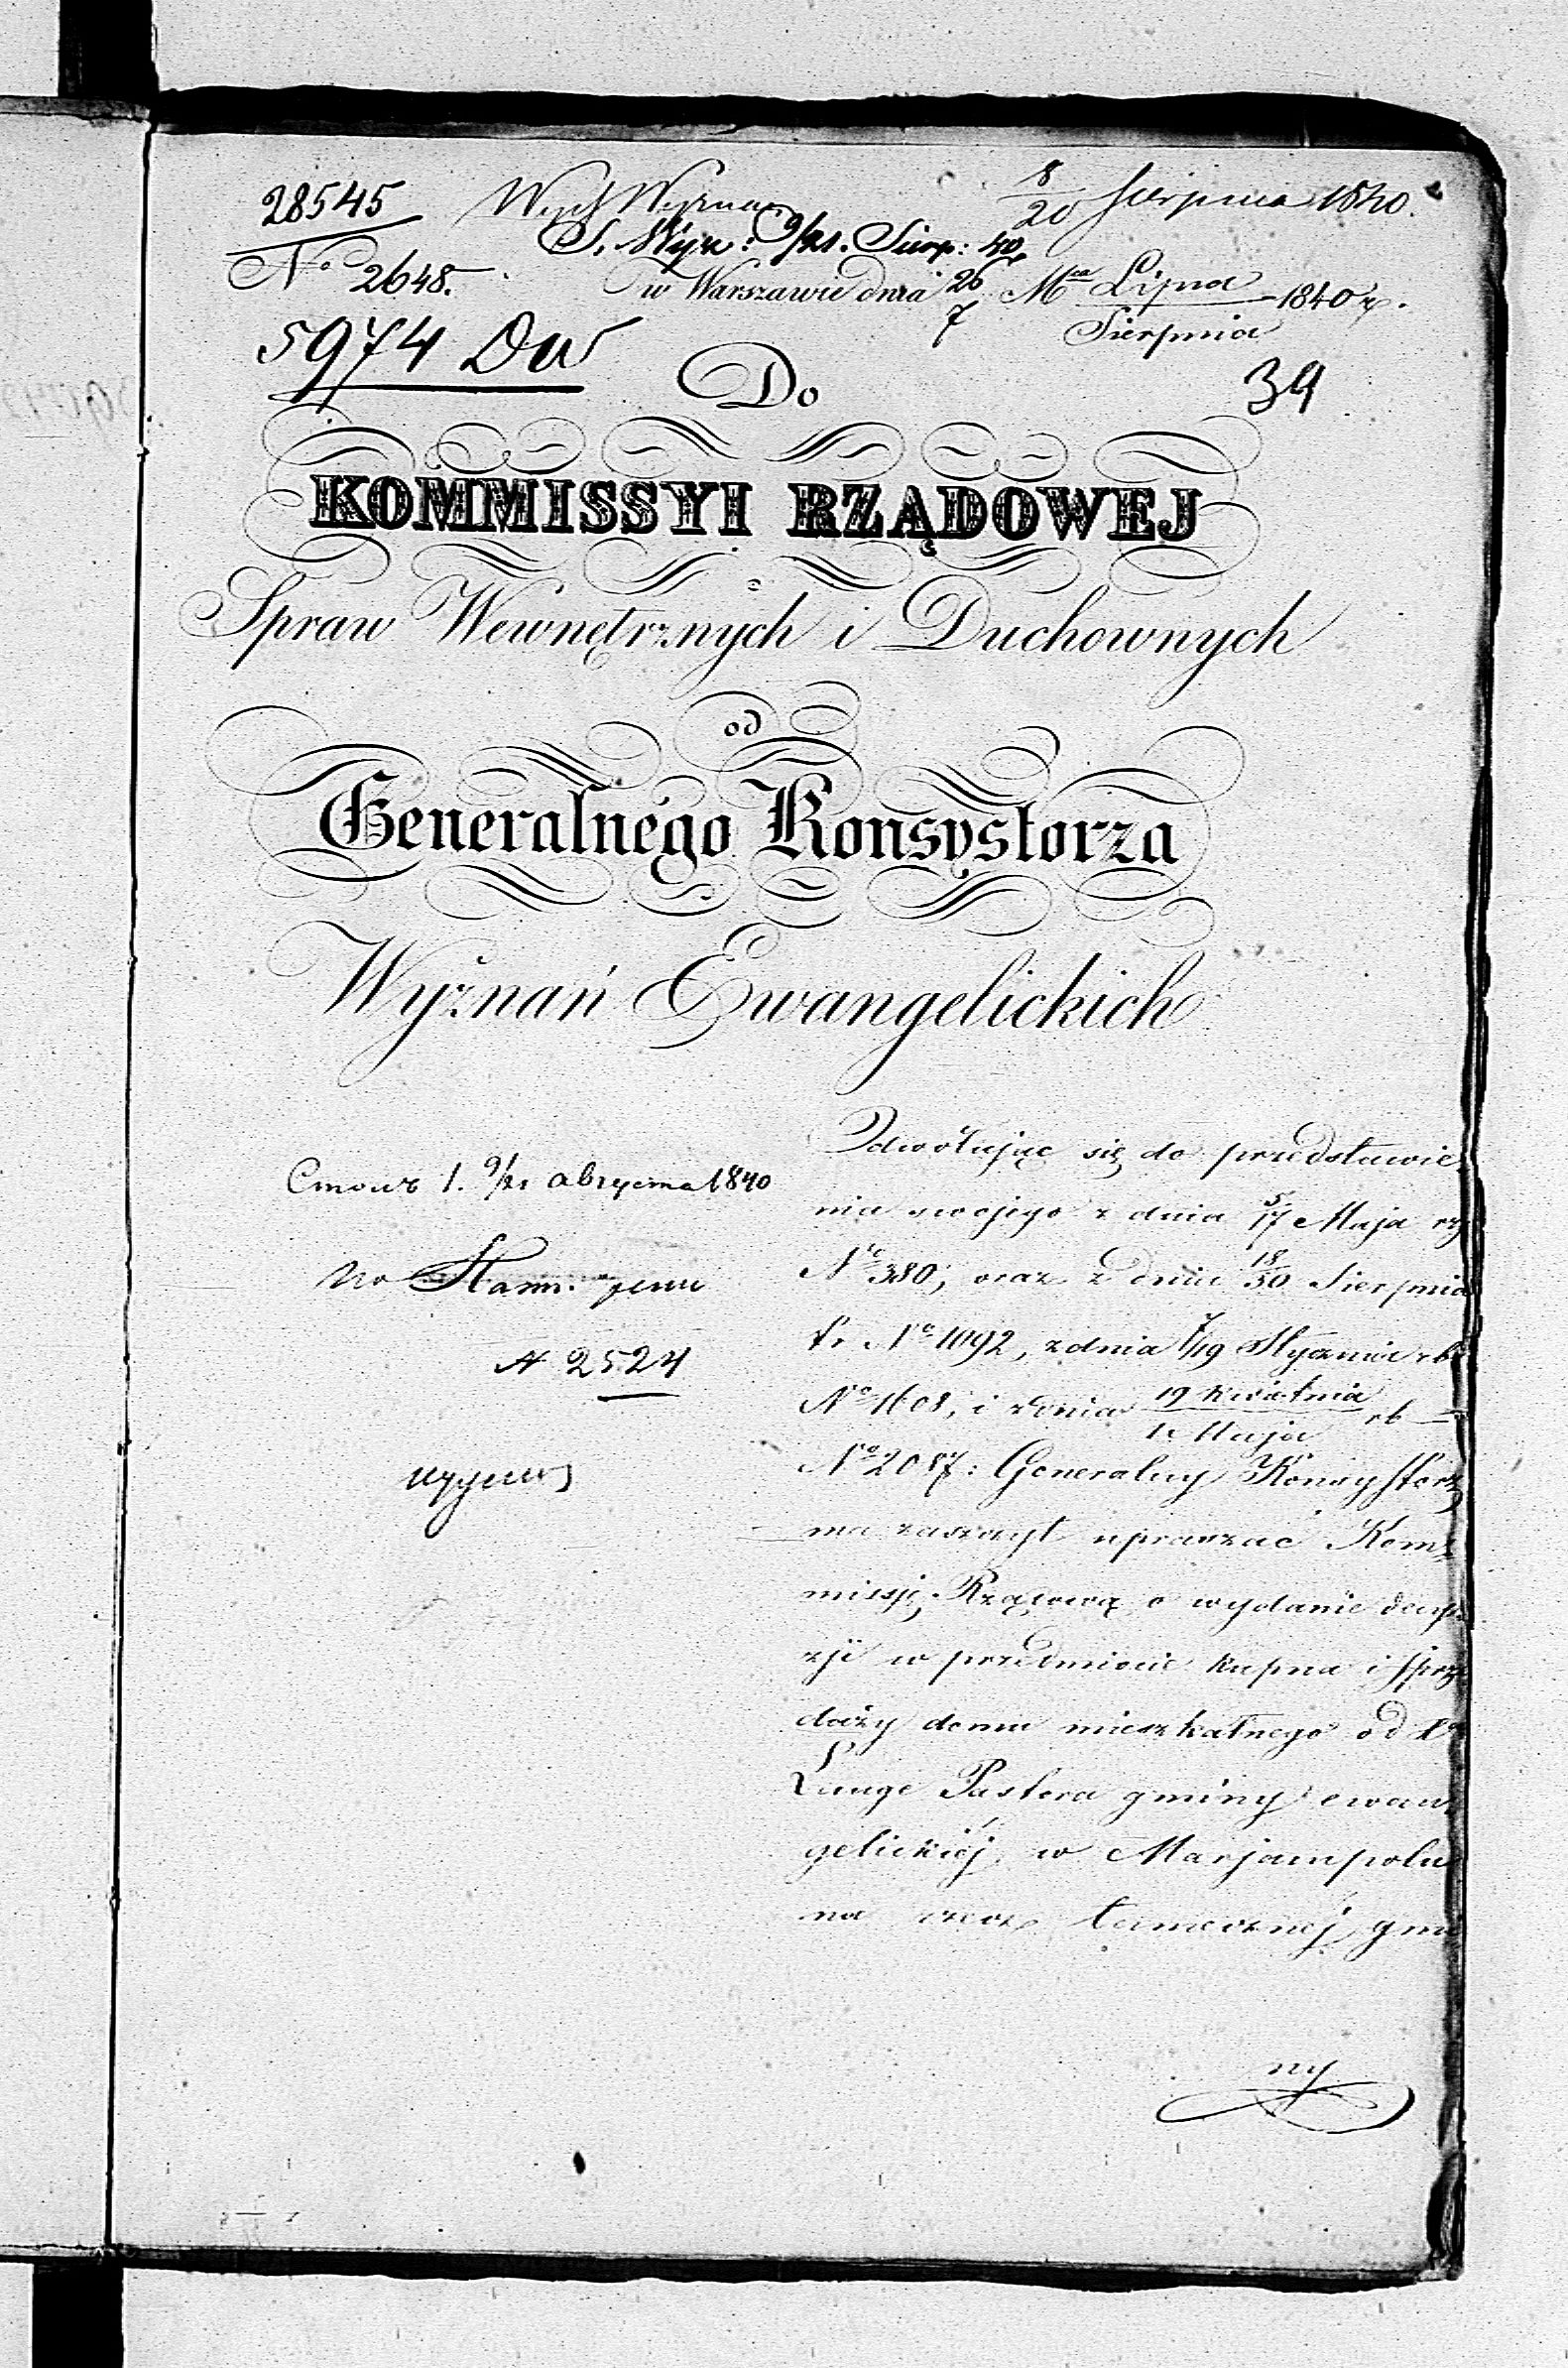 28545 Wydz Wyznań 8/20 Sierpnia 1840.
S. Wyzn: 9/21. Sierp: 40
No 2648. w Warszawie dnia 26/7 Mca Lipca/Sierpnia 1840 r.
5974 DW
Do 39
KOMMISSYI RZĄDOWEJ
Spraw Wewnętrznych i Duchownych
od
Generalnego Konsystorza
Wyznań Ewangelickich
Odwołując się do przedstawie
nia swojego z dnia 5/17 Maja rz
No 380, oraz z dnia 18/30 Sierpnia
No 1092, z dnia 7/19 Stycznia rb
No 1608, i z dnia 19 Kwietnia/1 Maja rb
No 2087: Generalny Konsystorz
ma zaszczyt upraszać Kom
missję Rządową o wydanie decy
zji w przedmiocie kupna i sprze
daży domu mieszkalnego od
Lange Pastora gminy ewan
gelickiéj w Marjampolu
na rzecz tamecznéj gmi
ny
1. 9/21 августа 1840
No
№ 2524